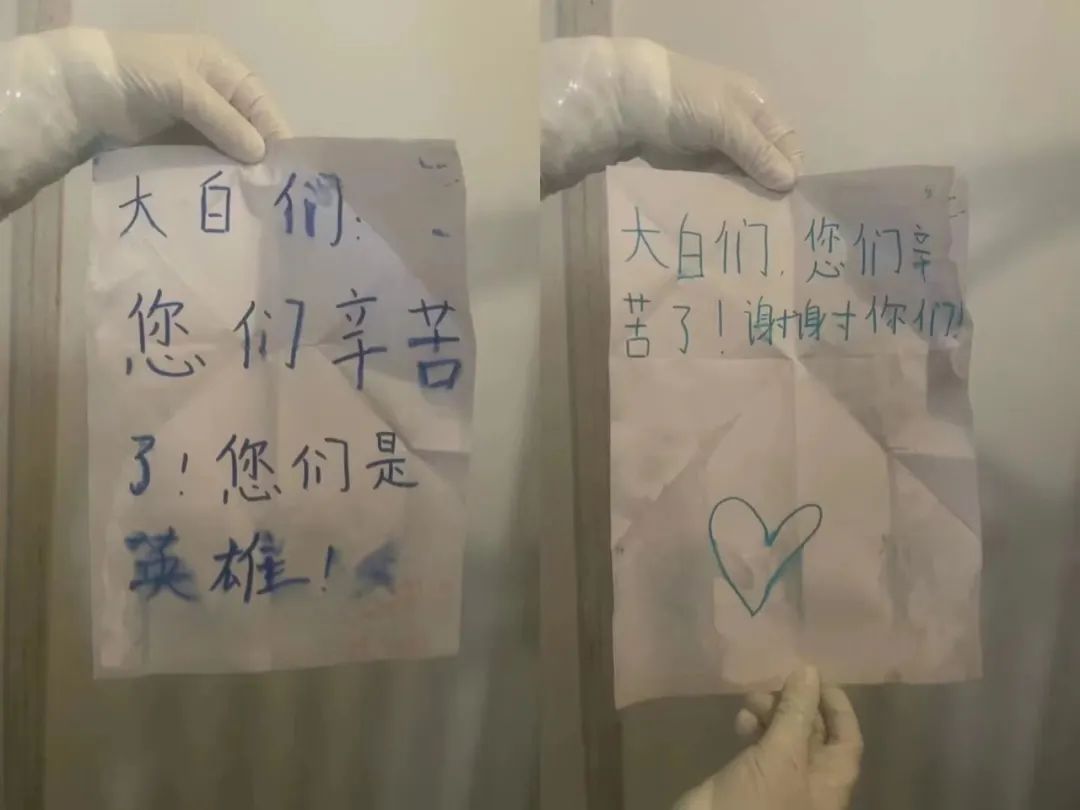 大白们:
您们辛苦
了!您们是
英雄!
大白们,您们辛
苦了!谢谢你们!